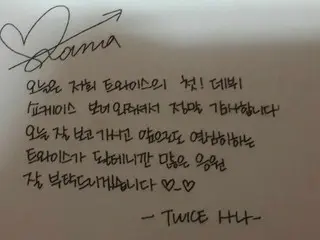 Sana
오늘은 저희 트와이스의 첫! 데뷔
쇼케이스 보러 와주셔서 정말 감사합니다
오늘 잘 보고 가시고 앞으로도 열심히하는
트와이스가 될테니깐 많은 응원
잘 부탁드리겠습니다 ♡_♡
- TWICE 사나 -